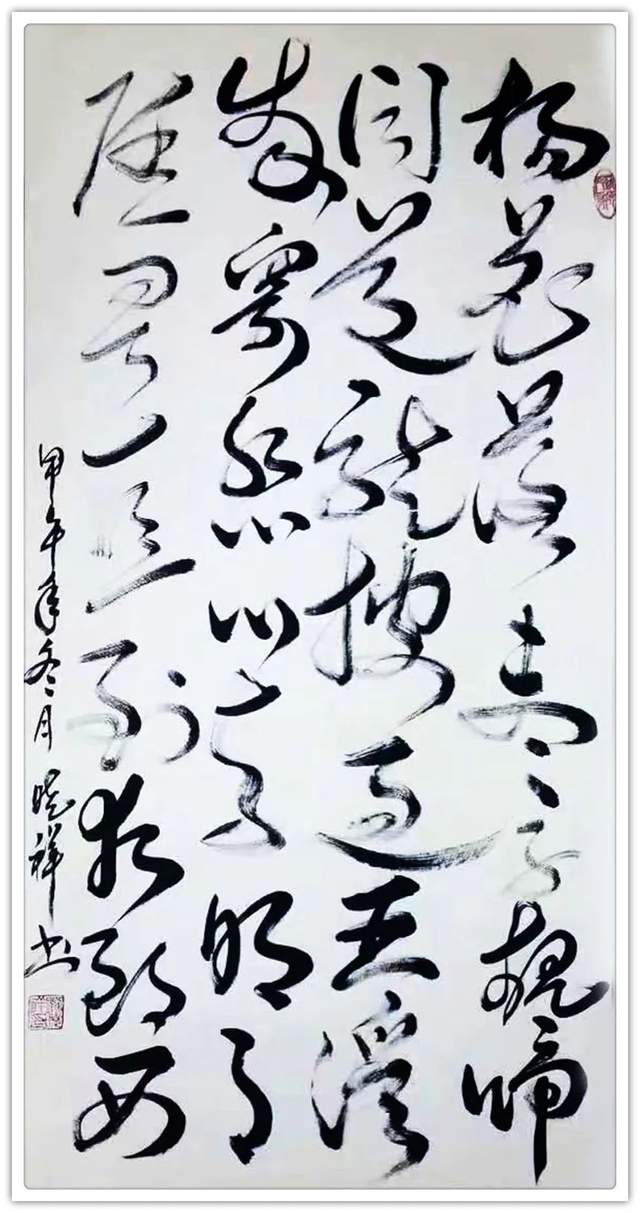 杨花落尽子规啼
闻道龙标过五溪
我寄愁心与明月
随君直到夜郎西
甲午年冬月 晓祥书